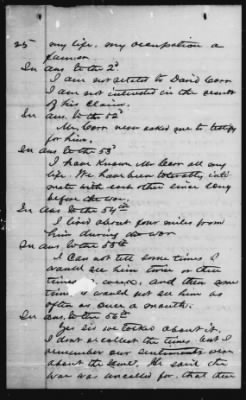 25 my life. my occupation a
farmer.
In ans to the 2d
I am not related to David Carr
I am not interested in the result
of his claim.
In ans. to the 52d
Mr Carr never asked me to testify
for him.
In ans to the 53d
I have known Mr Carr all my
life. We have been tolerably inti
mate with each other since long
before the war.
In ans to the 54th
I lived about four miles from
him during the war
In ans to the 55th
I can not tell some times I
would see him twice or three
times a week, and then some
times I would not see him as
often as once a month.
In ans. to the 56th
Yes sir we talked about it.
I dont recollect the times but I
remember our sentiments were
about the same. He said the
war was uncalled for, that there